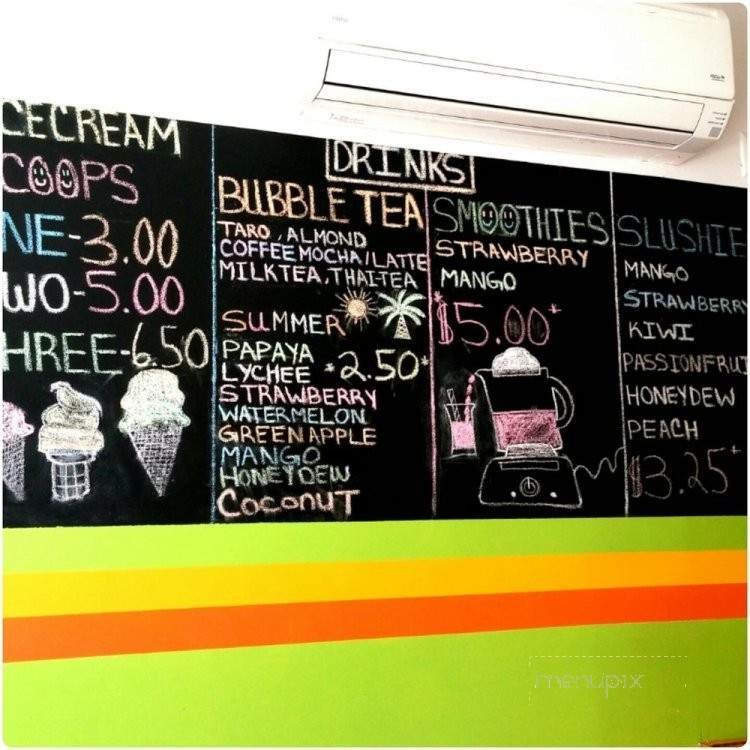 CECREAM
COOPS
NE-3.00
WO-5.00
HREE-6.50
DRINKS
BUBBLE TEA
TARO, ALMOND
COFFEE MOCHA/LATTE
MILKTEA, THAI-TEA
SUMMER
PAPAYA
LYCHEE
*2.50*
STRAWBERRY
WATERMELON
GREEN APPLE
MANGO
HONEYDEW
COCONUT
SMOOTHIES
STRAWBERRY
MANGO
$5.00+
SLUSHIE
MANGO
STRAWBERRY
KIWI
PASSIONFRUI
HONEYDEW
PEACH
$3.25+
menupix